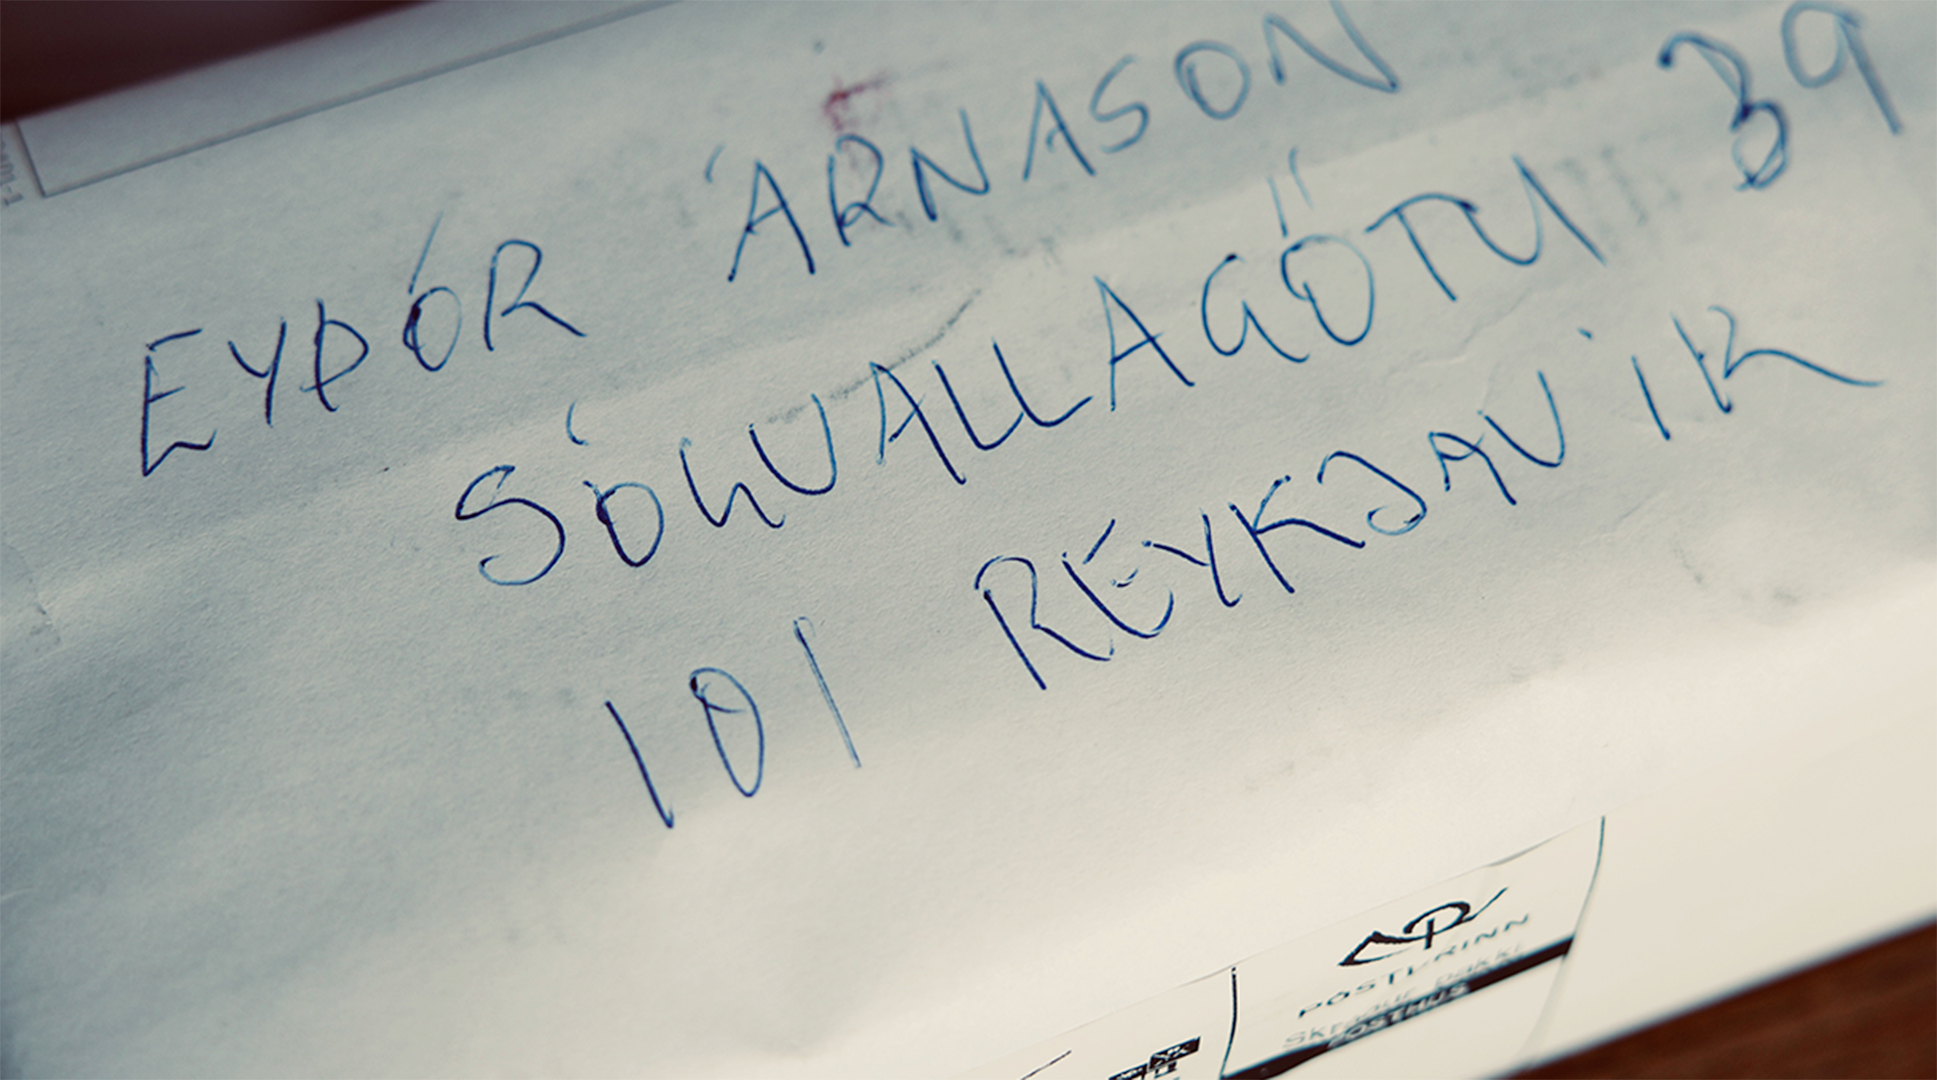 EYÞÓR ÁRNASON
SÓLVALLAGÖTU 39
101 REYKJAVIK
PÓSTURINN
Skráður pakki
PÓSTHÚS